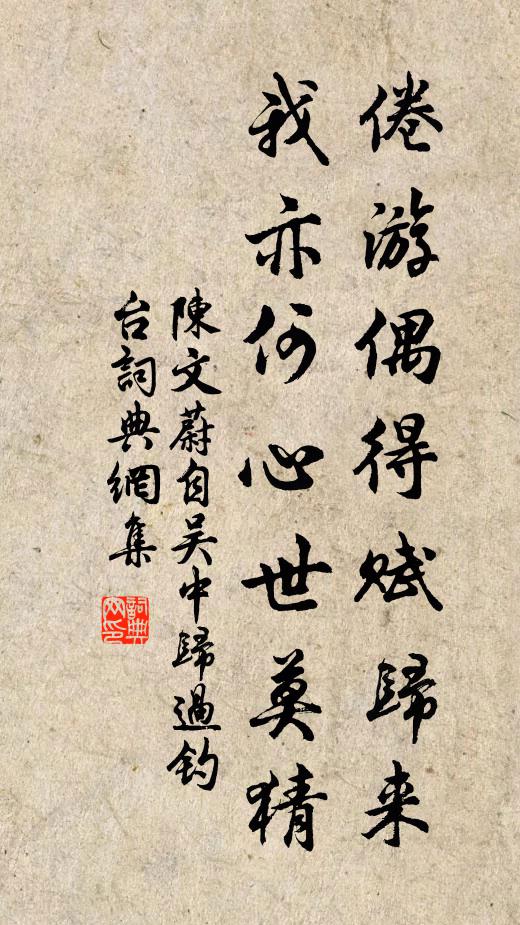 倦游偶得赋歸来
我亦何心世莫猜
陳文蔚自吴中歸過钓
台詞典網集
詞典
网印